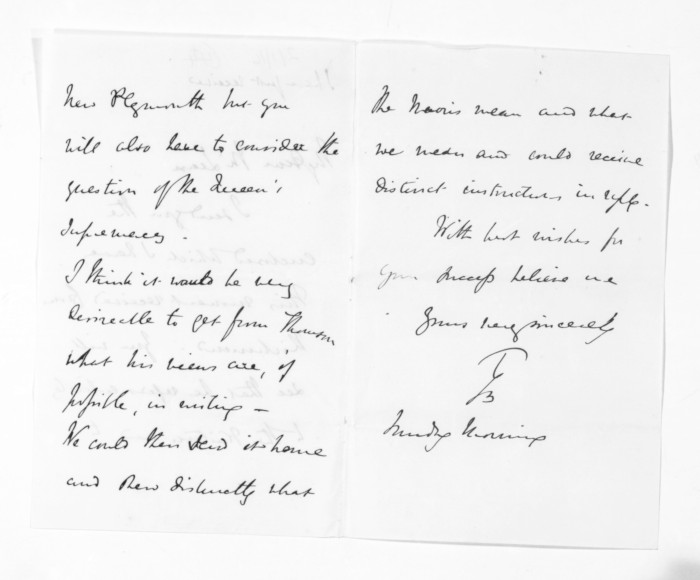 New Plymouth but you
will also have to consider the
question of the Queen's
Supremacy.
I think it would be very
desireable to get from Thomson
what his views are, if
possible, in writing —
We could then send it home
and shew distinctly what
the Maoris mean and what
we mean and could receive
distinct instructions in reply.
With best wishes for
your success believe me
Yours very sincerely
Sunday Morning